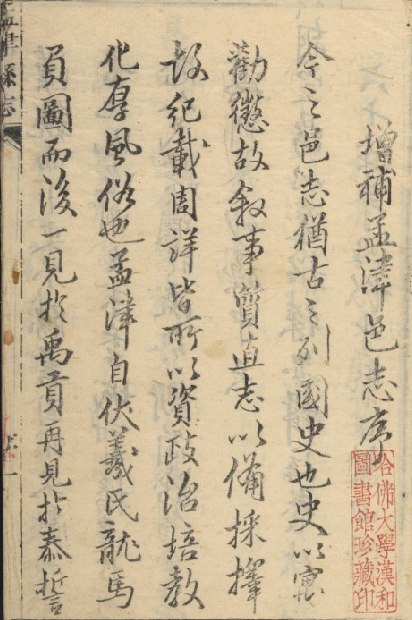 增補孟津邑志序
今之邑志猶古之列國史也史以寓
勸懲故叙事質直志以備採擇
故紀載周詳皆所以資政治培教
化厚風俗也孟津自伏羲氏龍馬
負圖而後一見於禹貢再見於泰誓
哈佛大學漢和
圖書館珍藏印
孟津縣志
序 一